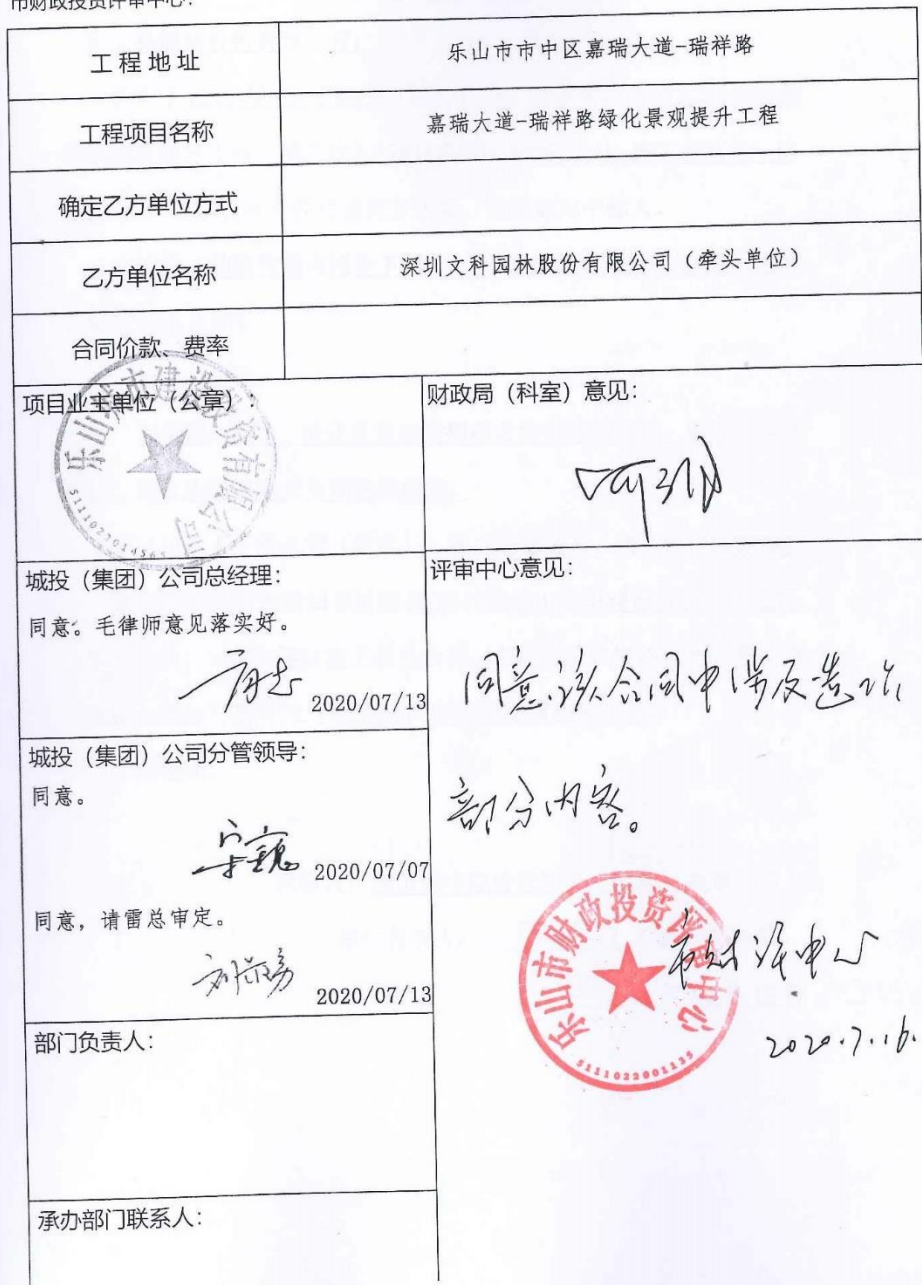 市财政投资评审中心：
工程地址
乐山市市中区嘉瑞大道-瑞祥路
工程项目名称
嘉瑞大道-瑞祥路绿化景观提升工程
确定乙方单位方式
乙方单位名称
深圳文科园林股份有限公司（牵头单位）
合同价款、费率
项目业主单位（公章）：
乐山城市建设投资有限公司
财政局（科室）意见：
城投（集团）公司总经理：
同意。毛律师意见落实好。
2020/07/13
城投（集团）公司分管领导：
同意。
2020/07/07
同意，请雷总审定。
2020/07/13
部门负责人：
承办部门联系人：
评审中心意见：
同意该合同中涉及造价
部分内容。
乐山市财政投资评审中心
5111022001135
市财评中心
2020.7.16.